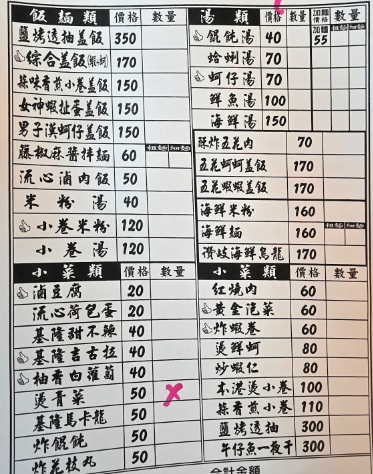 飯麵類 價格 數量
鹽烤透抽蓋飯 350
綜合蓋飯(蝦蚵) 170
蒜味香煎小卷蓋飯 150
女神蝦扯蛋蓋飯 150
男子漢蚵仔蓋飯 150
藤椒麻醬拌麵 60 粗麵 細麵
流心滷肉飯 50
米粉湯 40
小卷米粉 120
小卷湯 120
小菜類 價格 數量
滷豆腐 20
流心荷包蛋 20
基隆甜不辣 40
基隆吉古拉 40
柚香白蘿蔔 40
燙青菜 50
基隆馬卡龍 50
炸餛飩 50
炸花枝丸 50
湯類 價格 加麵價格 數量
餛飩湯 40 加麵 55 粗麵 細麵
蛤蜊湯 70
蚵仔湯 70
鮮魚湯 100
海鮮湯 150
酥炸五花肉 70
五花蚵蚵蓋飯 170
五花蝦蝦蓋飯 170
海鮮米粉 160
海鮮麵 160 粗麵 細麵
讚岐海鮮烏龍 170
小菜類 價格 數量
紅燒肉 60
黃金泡菜 60
炸蝦卷 60
燙鮮蚵 80
炒蝦仁 80
本港燙小卷 100
蒜香煎小卷 110
鹽烤透抽 300
午仔魚一夜干 300
合計金額